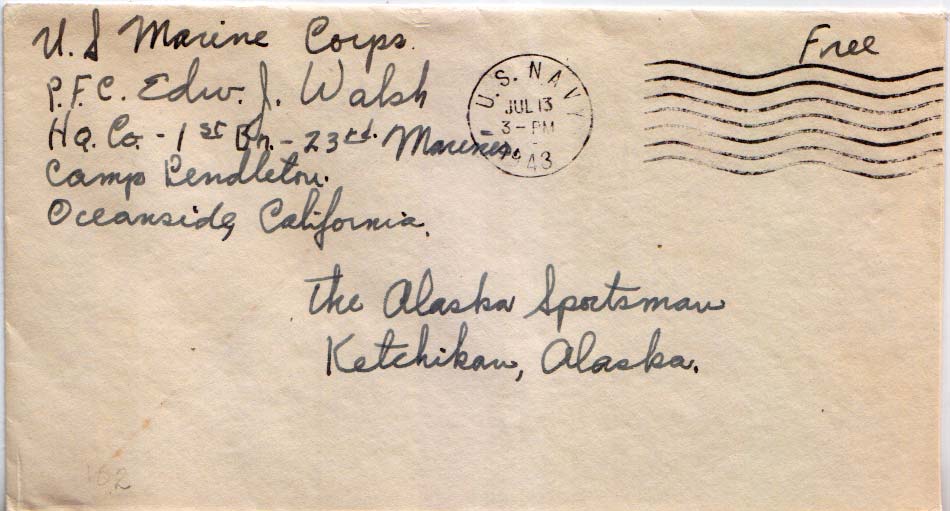 U.S Marine Corps.
Free
P.F.C. Edw. J. Walsh
Hq. Co. - 1st Bn. - 23rd. Marines
Camp Pendleton.
Oceanside, California.
U.S. NAVY
JUL 13
3 - PM
1943
The Alaska Sportsman
Ketchikan, Alaska.
162